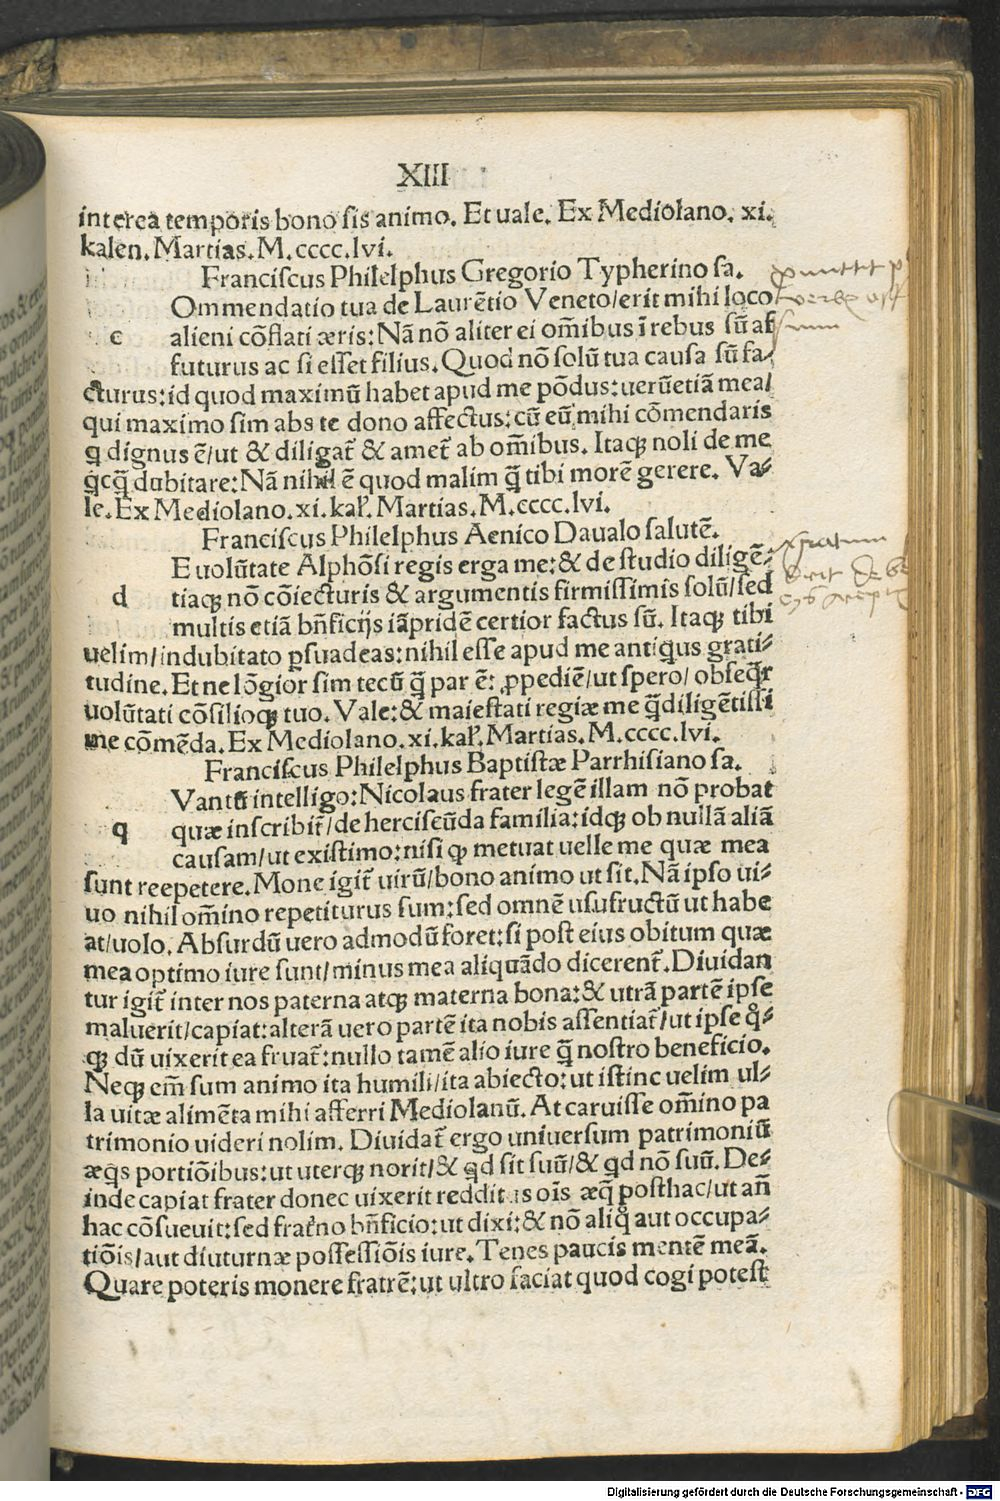 XIII
interea temporis bono sis animo. Et uale. Ex Mediolano. xi.
kalen. Martias. M.cccc.lvi.
Franciſcus Philelphus Gregorio Typherino ſa.
Ommendatio tua de Laurẽtio Veneto/erit mihi loco
c alieni cõflati æris: Nã nõ aliter ei om̃ibus ĩ rebus ſũ aſ
futurus ac ſi eſſet filius. Quod nõ ſolũ tua cauſa ſũ fa⸗
cturus: id quod maximũ habet apud me põdus: uerũetiã mea/
qui maximo ſim abs te dono affectus: cũ eũ mihi cõmendaris
q dignus ẽ/ut & diligat̃ & amet̃ ab om̃ibus. Itaqꝫ noli de me
q̊cq̃ dubitare: Nã nihil ẽ quod malim q̃ tibi morẽ gerere. Va⸗
le. Ex Mediolano. xi. kal̃. Martias. M.cccc.lvi.
Franciſcus Philelphus Aenico Daualo ſalutẽ.
E uolũtate Alphõſi regis erga me: & de ſtudio diligẽ⸗
d tiaqꝫ nõ cõiecturis & argumentis firmiſſimis ſolũ/ſed
multis etiã bñficijs iãpridẽ certior factus ſũ. Itaqꝫ tibi
uelim/indubitato ꝑſuadeas: nihil eſſe apud me antiq̊us grati⸗
tudine. Et ne lõgior ſim tecũ q̃ par ẽ: ꝓpediẽ/ut ſpero/ obſeq̃r
uolũtati cõſilioqꝫ tuo. Vale: & maieſtati regiæ me q̃diligẽtiſſi
me cõmẽda. Ex Mediolano. xi. kal̃. Martias. M.cccc.lvi.
Franciſcus Philelphus Baptiſtæ Parrhiſiano ſa.
Vantũ intelligo: Nicolaus frater legẽ illam nõ probat
q quæ inſcribit̃/de herciſcũda familia: idqꝫ ob nullã aliã
cauſam/ut exiſtimo: niſi ꝙ metuat uelle me quæ mea
ſunt reepetere. Mone igit̃ uirũ/bono animo ut ſit. Nã ipſo ui⸗
uo nihil om̃ino repetiturus ſum: ſed omnẽ uſufructũ ut habe
at/uolo. Abſurdũ uero admodũ foret: ſi poſt eius obitum quæ
mea optimo iure ſunt/minus mea aliquãdo dicerent̃. Diuidan
tur igit̃ inter nos paterna atqꝫ materna bona: & utrã partẽ ipſe
maluerit/capiat: alterã uero partẽ ita nobis aſſentiat̃/ut ipſe q̊⸗
qꝫ dũ uixerit ea fruat̃: nullo tamẽ alio iure q̃ noſtro beneficio.
Neqꝫ em̃ ſum animo ita humili/ita abiecto: ut iſtinc uelim ul⸗
la uitæ alimẽta mihi afferri Mediolanũ. At caruiſſe om̃ino pa
trimonio uideri nolim. Diuidat̃ ergo uniuerſum patrimoniũ
æq̊s portiõibus: ut uterqꝫ norit/& qd ſit ſuũ/& qd nõ ſuũ. De⸗
inde capiat frater donec uixerit redditus oĩs æq̃ poſthac/ut añ
hac cõſueuit: ſed frat̃no bñficio: ut dixi: & nõ aliq̊ aut occupa⸗
tiõis/aut diuturnæ poſſeſſiõis iure. Tenes paucis mentẽ meã.
Quare poteris monere fratrẽ: ut ultro faciat quod cogi poteſt
Digitalisierung gefördert durch die Deutsche Forschungsgemeinschaft - DFG